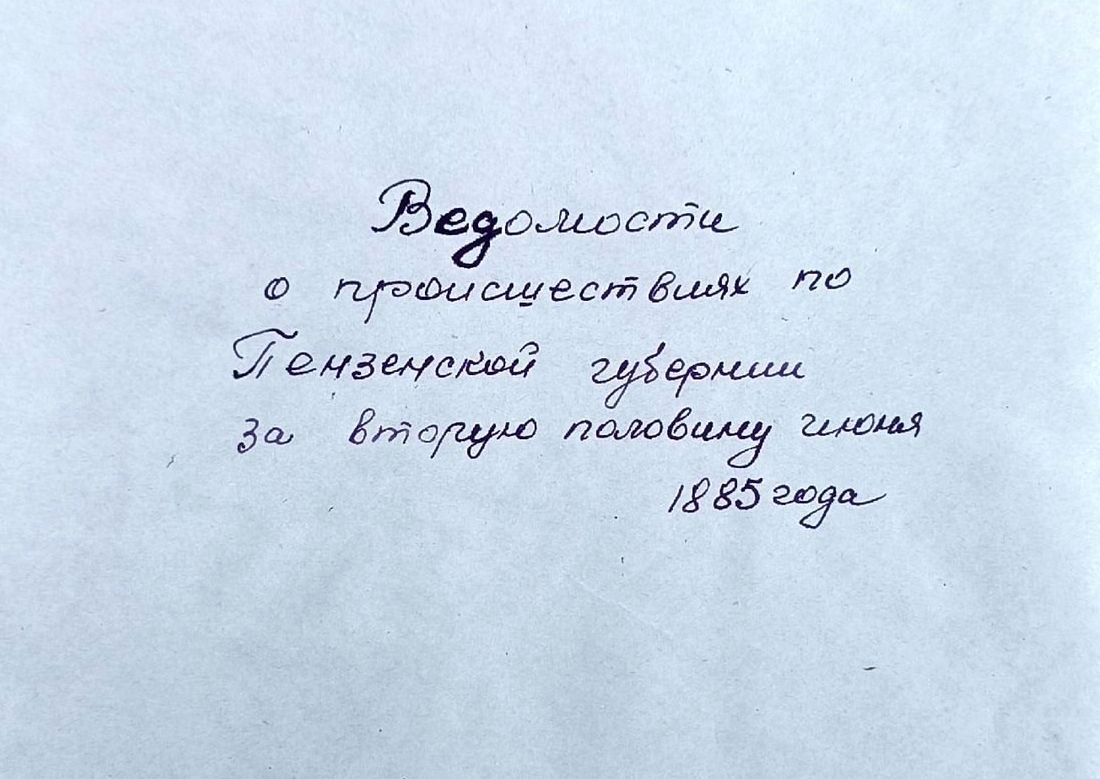 Ведомости
о происшествиях по
Пензенской губернии
за вторую половину июня
1885 года